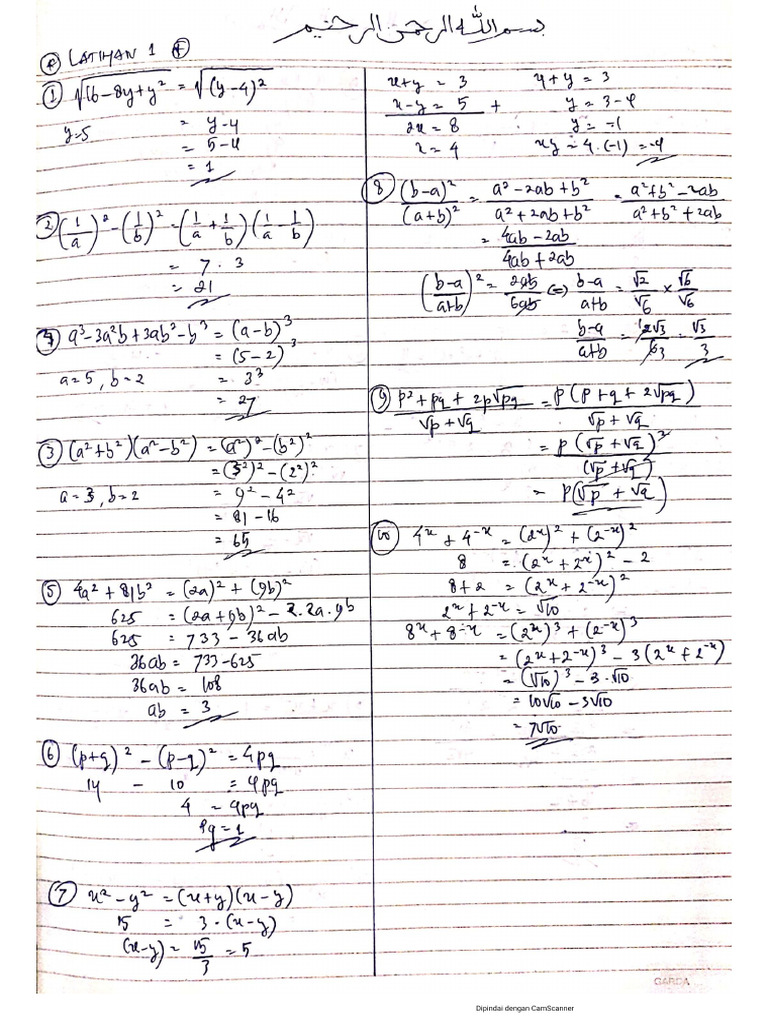 بسم الله الرحمن الرحيم
LATIHAN 1
① √(16 − 8y + y²) = √(y−4)²
y=5 = y−4
= 5−4
= 1
② (1/a)² − (1/b)² = (1/a + 1/b)(1/a − 1/b)
= 7 . 3
= 21
④ a³ − 3a²b + 3ab² − b³ = (a−b)³
= (5−2)³
a=5, b=2 = 3³
= 27
③ (a²+b²)(a²−b²) = (a²)² − (b²)²
= (3²)² − (2²)²
a=3, b=2 = 9² − 4²
= 81 − 16
= 65
⑤ 4a² + 81b² = (2a)² + (9b)²
625 = (2a+9b)² − 2.2a.9b
625 = 733 − 36ab
36ab = 733 − 625
36ab = 108
ab = 3
⑥ (p+q)² − (p−q)² = 4pq
14 − 10 = 4pq
4 = 4pq
pq = 1
⑦ x² − y² = (x+y)(x−y)
15 = 3.(x−y)
(x−y) = 15/3 = 5
x+y = 3 4+y = 3
x−y = 5 + y = 3−4
2x = 8 y = −1
x = 4 xy = 4.(−1) = −4
⑧ (b−a)²/(a+b)² = (a²−2ab+b²)/(a²+2ab+b²) = (a²+b²−2ab)/(a²+b²+2ab)
= (4ab−2ab)/(4ab+2ab)
((b−a)/(a+b))² = 2ab/6ab ⇔ (b−a)/(a+b) = √2/√6 × √6/√6
(b−a)/(a+b) = 2√3/6 = √3/3
⑨ (p² + pq + 2p√pq)/(√p+√q) = p(p+q+2√pq)/(√p+√q)
= p(√p+√q)²/(√p+√q)
= p(√p+√q)
⑩ 4ˣ + 4⁻ˣ = (2ˣ)² + (2⁻ˣ)²
8 = (2ˣ + 2ˣ)² − 2
8+2 = (2ˣ + 2⁻ˣ)²
2ˣ + 2⁻ˣ = √10
8ˣ + 8⁻ˣ = (2ˣ)³ + (2⁻ˣ)³
= (2ˣ + 2⁻ˣ)³ − 3(2ˣ + 2⁻ˣ)
= (√10)³ − 3.√10
= 10√10 − 3√10
= 7√10
GARDA
Dipindai dengan CamScanner